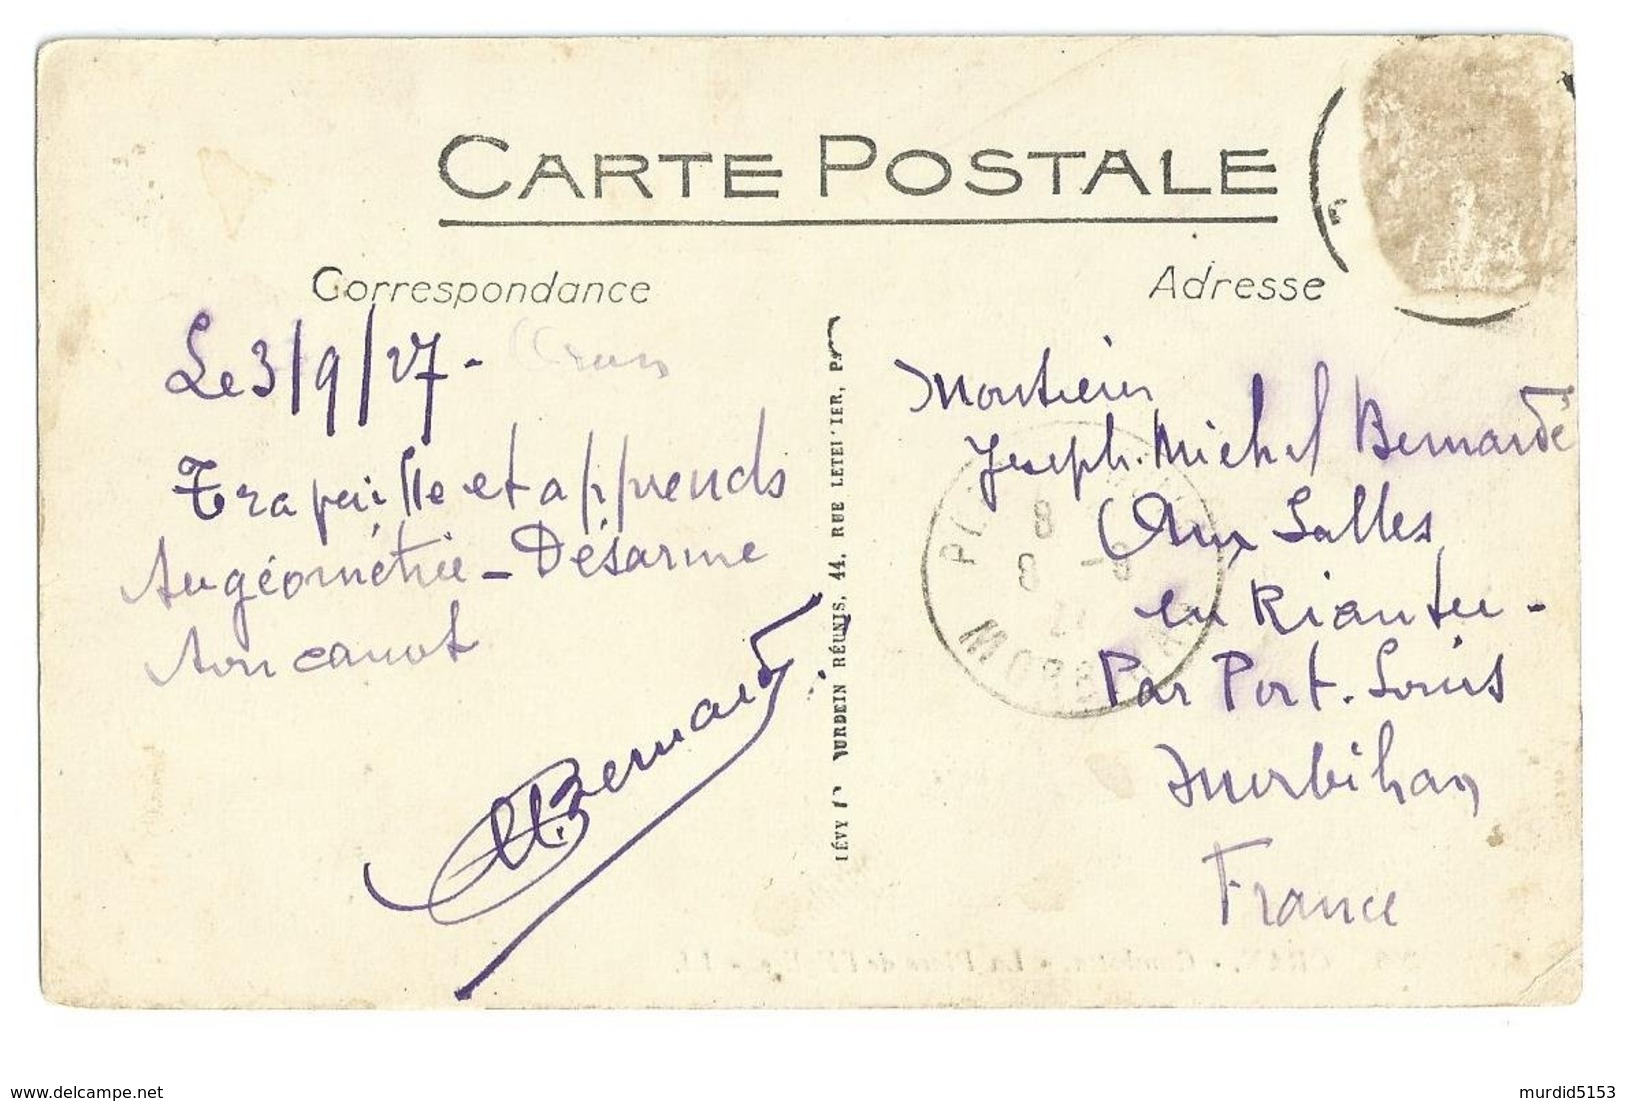 CARTE POSTALE
Correspondance
Adresse
Le 3/9/27 - Oran
Trapaille et apprends
ta géométrie - Désarme
ton canot
Bernard
LÉVY NEURDEIN RÉUNIS, 44, RUE LETELLIER, PA
Monsieur
Joseph. Michel Bernard
Aux Salles
en Riantec -
Par Port. Louis
Morbihan
France
MORBIHAN
8
www.delcampe.net
murdid5153